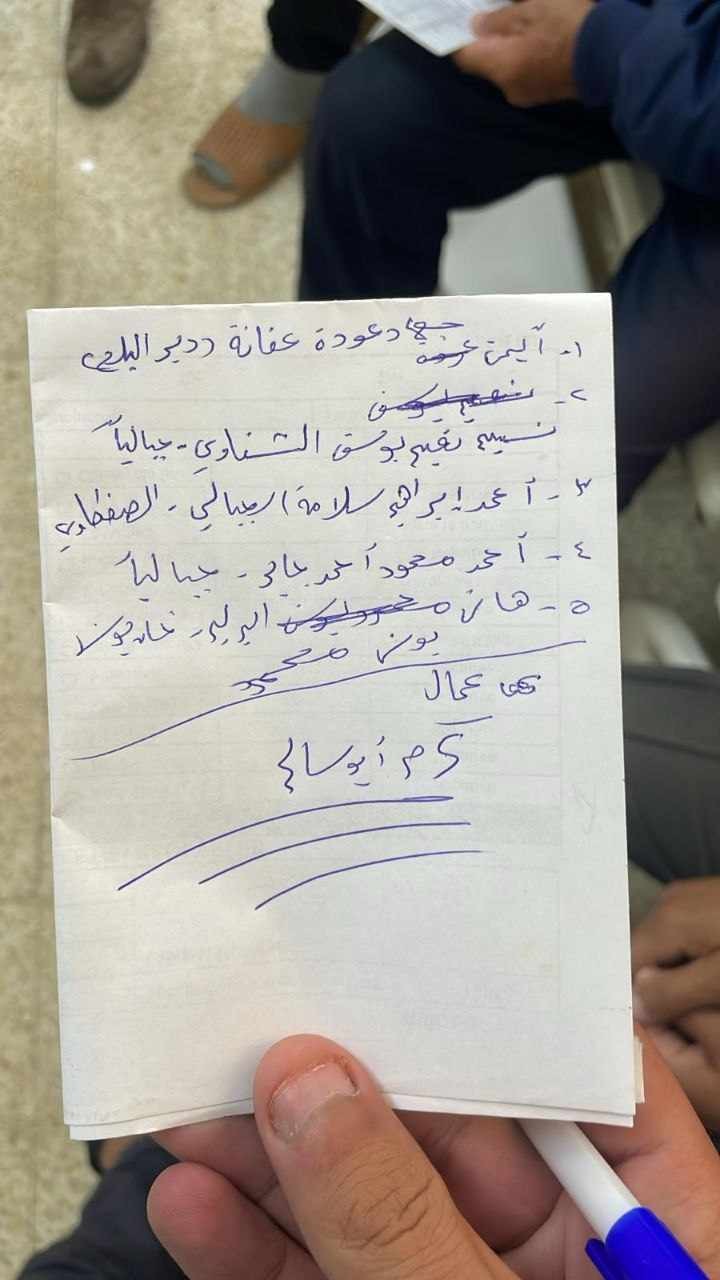 ١- أيمن جهاد عودة عفانة دير البلح
٢-
نسيم نعيم يوسف الشنتاوي - جباليا
٣- أحمد إبراهيم سلامة الجبالي - الصفطاوي
٤- أحمد محمود أحمد - جباليا
٥- هاني البريم - خان يونس
يونس محمود
عمال
كرم أبو سالم